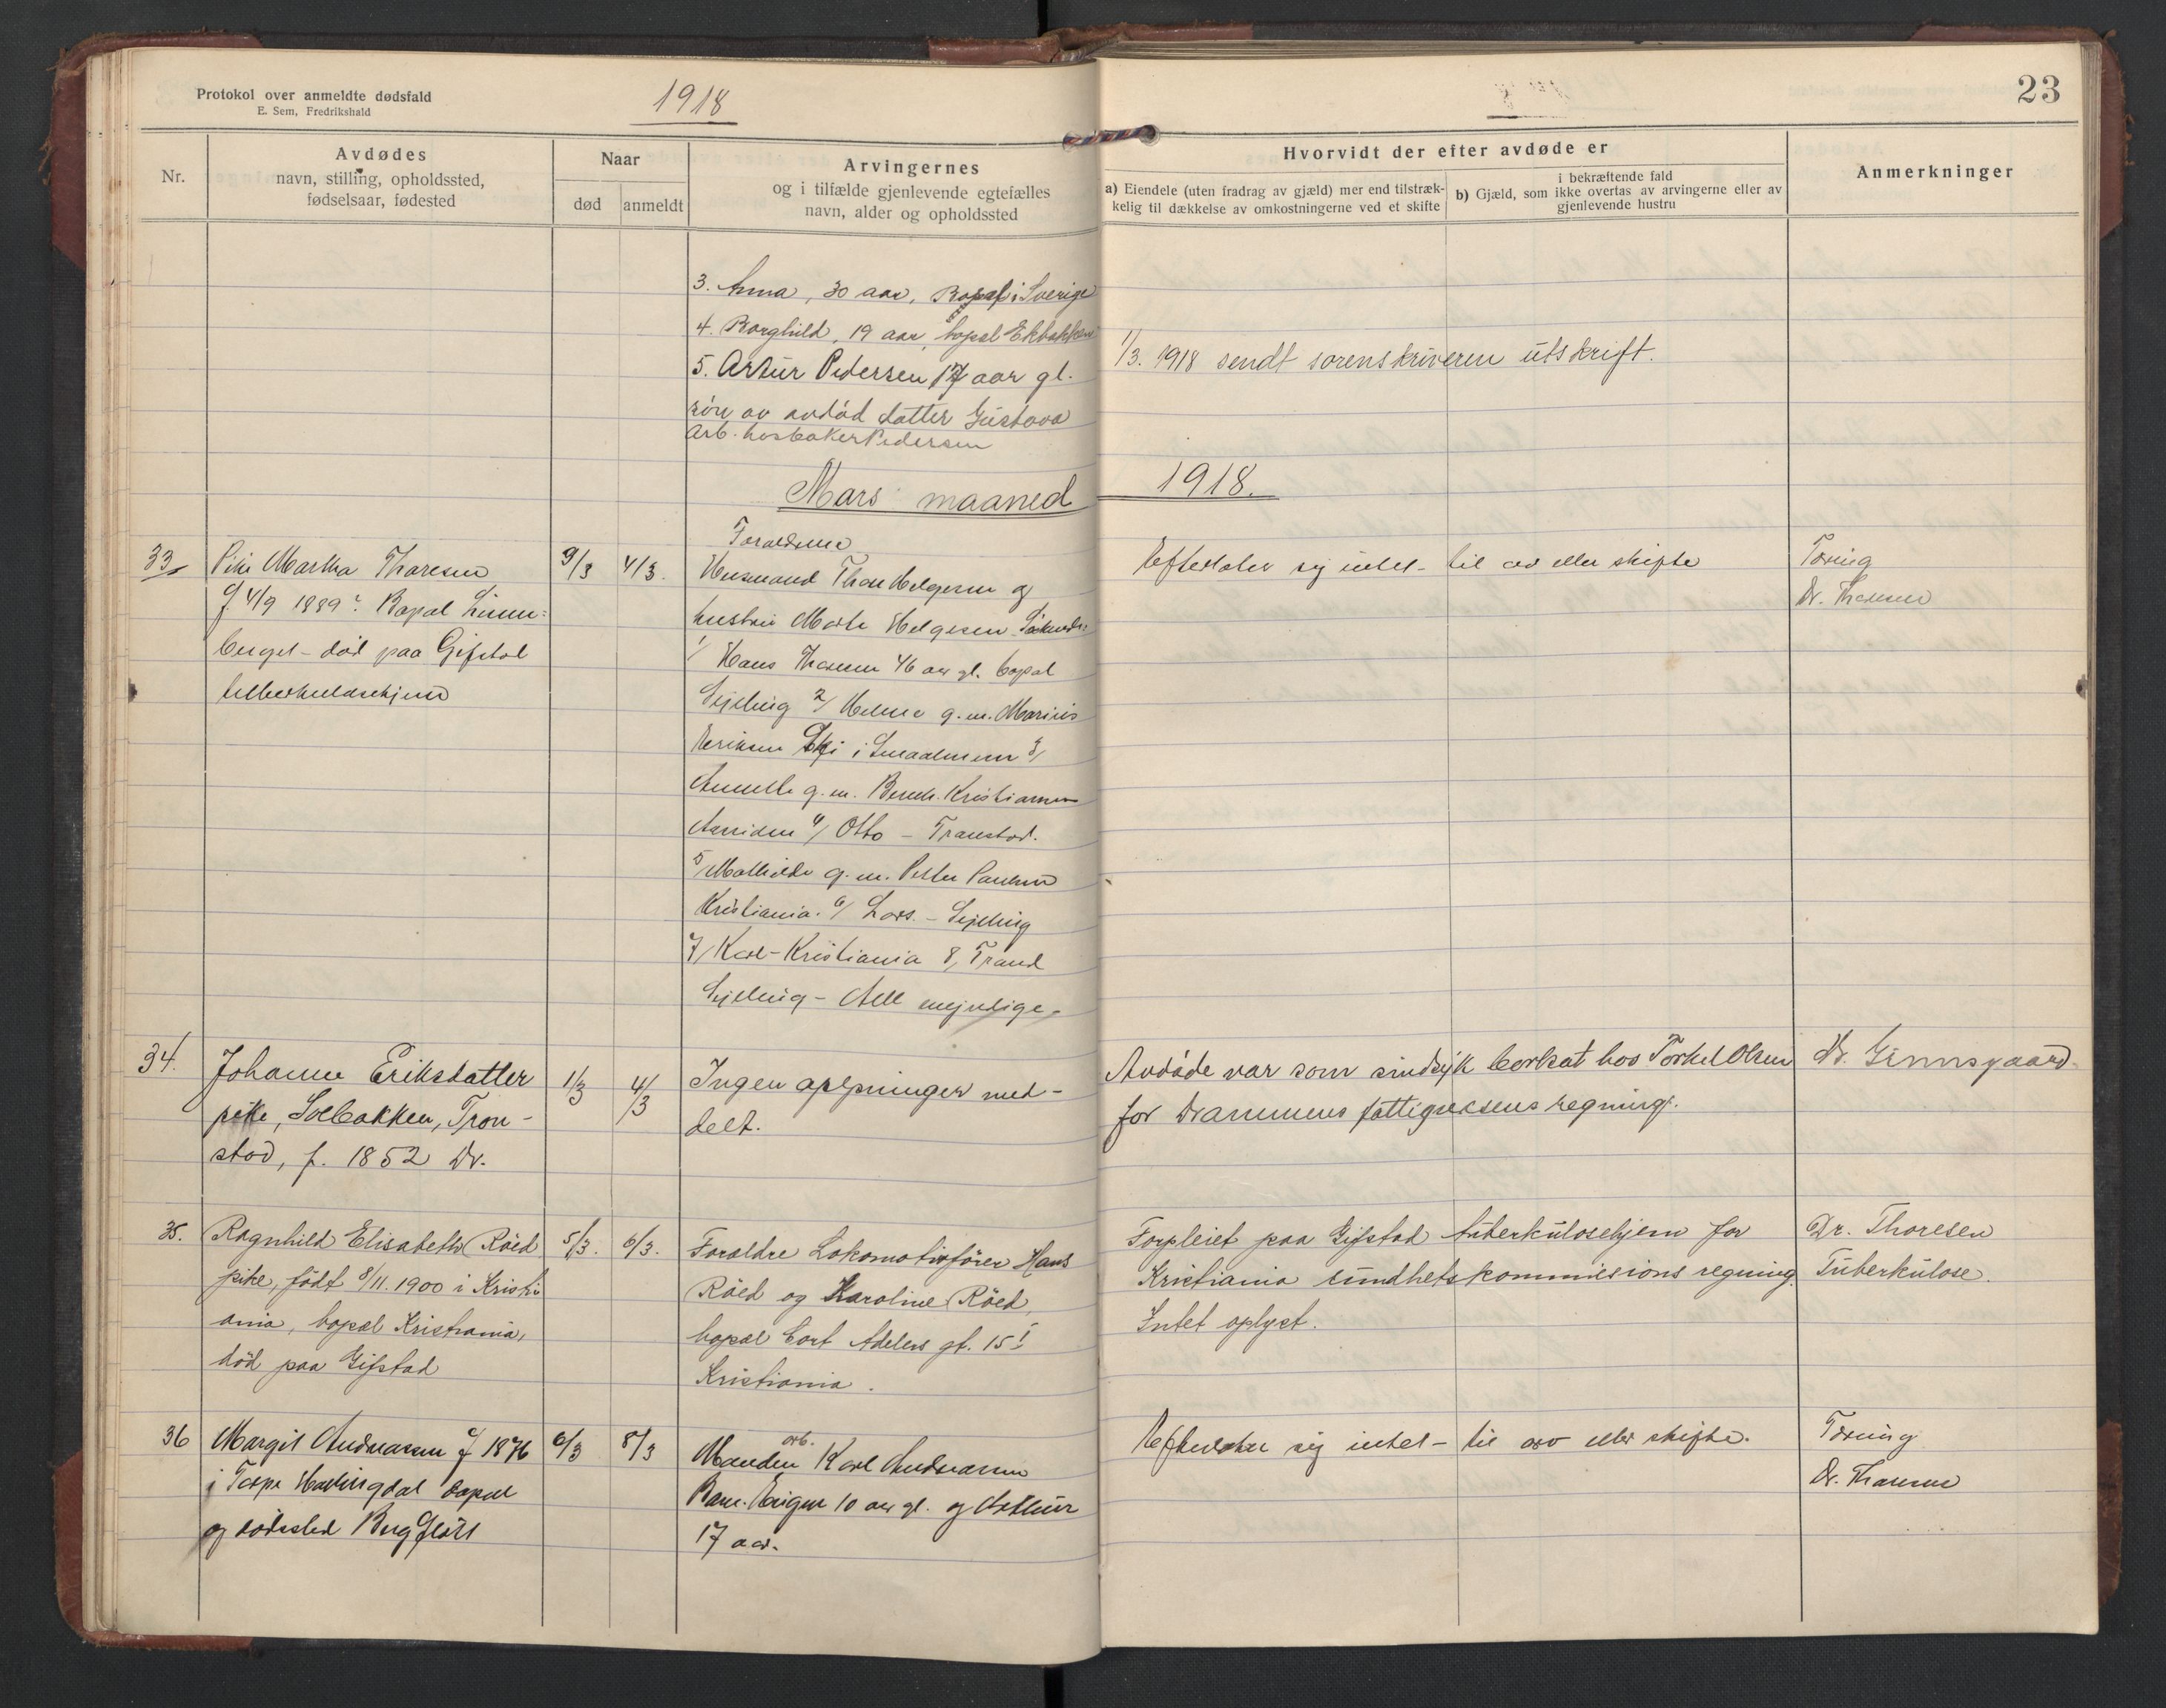 Protokol over anmeldte dødsfald
E. Sem, Fredrikshald
1918
23
Nr.
Avdødes
navn, stilling, opholdssted,
fødselsaar, fødested
Naar
død
anmeldt
Arvingernes
og i tilfælde gjenlevende egtefælles
navn, alder og opholdssted
Hvorvidt der efter avdøde er
a) Eiendele (uten fradrag av gjæld) mer end tilstræk-
kelig til dækkelse av omkostningerne ved et skifte
i bekræftende fald
b) Gjæld, som ikke overtas av arvingerne eller av
gjenlevende hustru
Anmerkninger
3. Anna, 30 aar, Bopæl i Sverige
4. Borghild, 19 aar, bopæl Ekbakken
5. Artur Pedersen 17 aar gl.
søn av avdød datter Gustava
Arb. hos baker Pedersen
1/3. 1918 sendt sorenskriveren utskrift.
Mars maaned 1918.
33
Pike Martha Thoresen
f 4/9 1889? Bopæl
død paa Gifstad
tuberkulosehjem
9/3
4/3.
Forældrene
Husmand Thore Helgesen og
hustru Marte Helgesen
1/ Hans Thoresen 46 aar gl. bopæl
2/ g.m. Marius
Eriksen Ski i Smaalenene 3/
g.m. Kristiansen
4/ Otto - Transtad.
5/ Mathilde g.m. Petter Paulsen
Kristiania. 6/ Lars -
7/ Karl - Kristiania 8/ Trand
- Alle myndige.
Efterlater sig intet - til arv eller skifte
Tæring
Dr. Thoresen
34.
Johanne Eriksdatter
pike, Solbakken, Tron-
stad, f. 1852 Dr.
1/3
4/3
Ingen oplysninger med-
delt.
Avdøde var som sindsyk bortsat hos Torkel Olsen
for Drammens fattigvæsens regning.
Dr. Grimsgaard
35.
Ragnhild Elisabeth Røed
pike, født 8/11. 1900 i Kristi
ania, bopæl Kristiania,
død paa Gifstad
5/3.
6/3.
Forældre Lokomotivfører Hans
Røed og Karoline Røed,
bopæl Cort Adelers gt. 15 I
Kristiania.
Forpleiet paa Gifstad tuberkulosehjem for
Kristiania sundhetskommissions regning.
Intet oplyst.
Dr. Thoresen
Tuberkulose.
36
Margit Andreassen f 1876
i Torpe Hallingdal bopæl
og dødssted Bergfløtt
6/3
8/3
arb.
Manden Karl Andreassen
Barn. 10 aar gl. og Arthur
17 aar.
Efterlater sig intet - til arv eller skifte.
Tæring
Dr. Thoresen